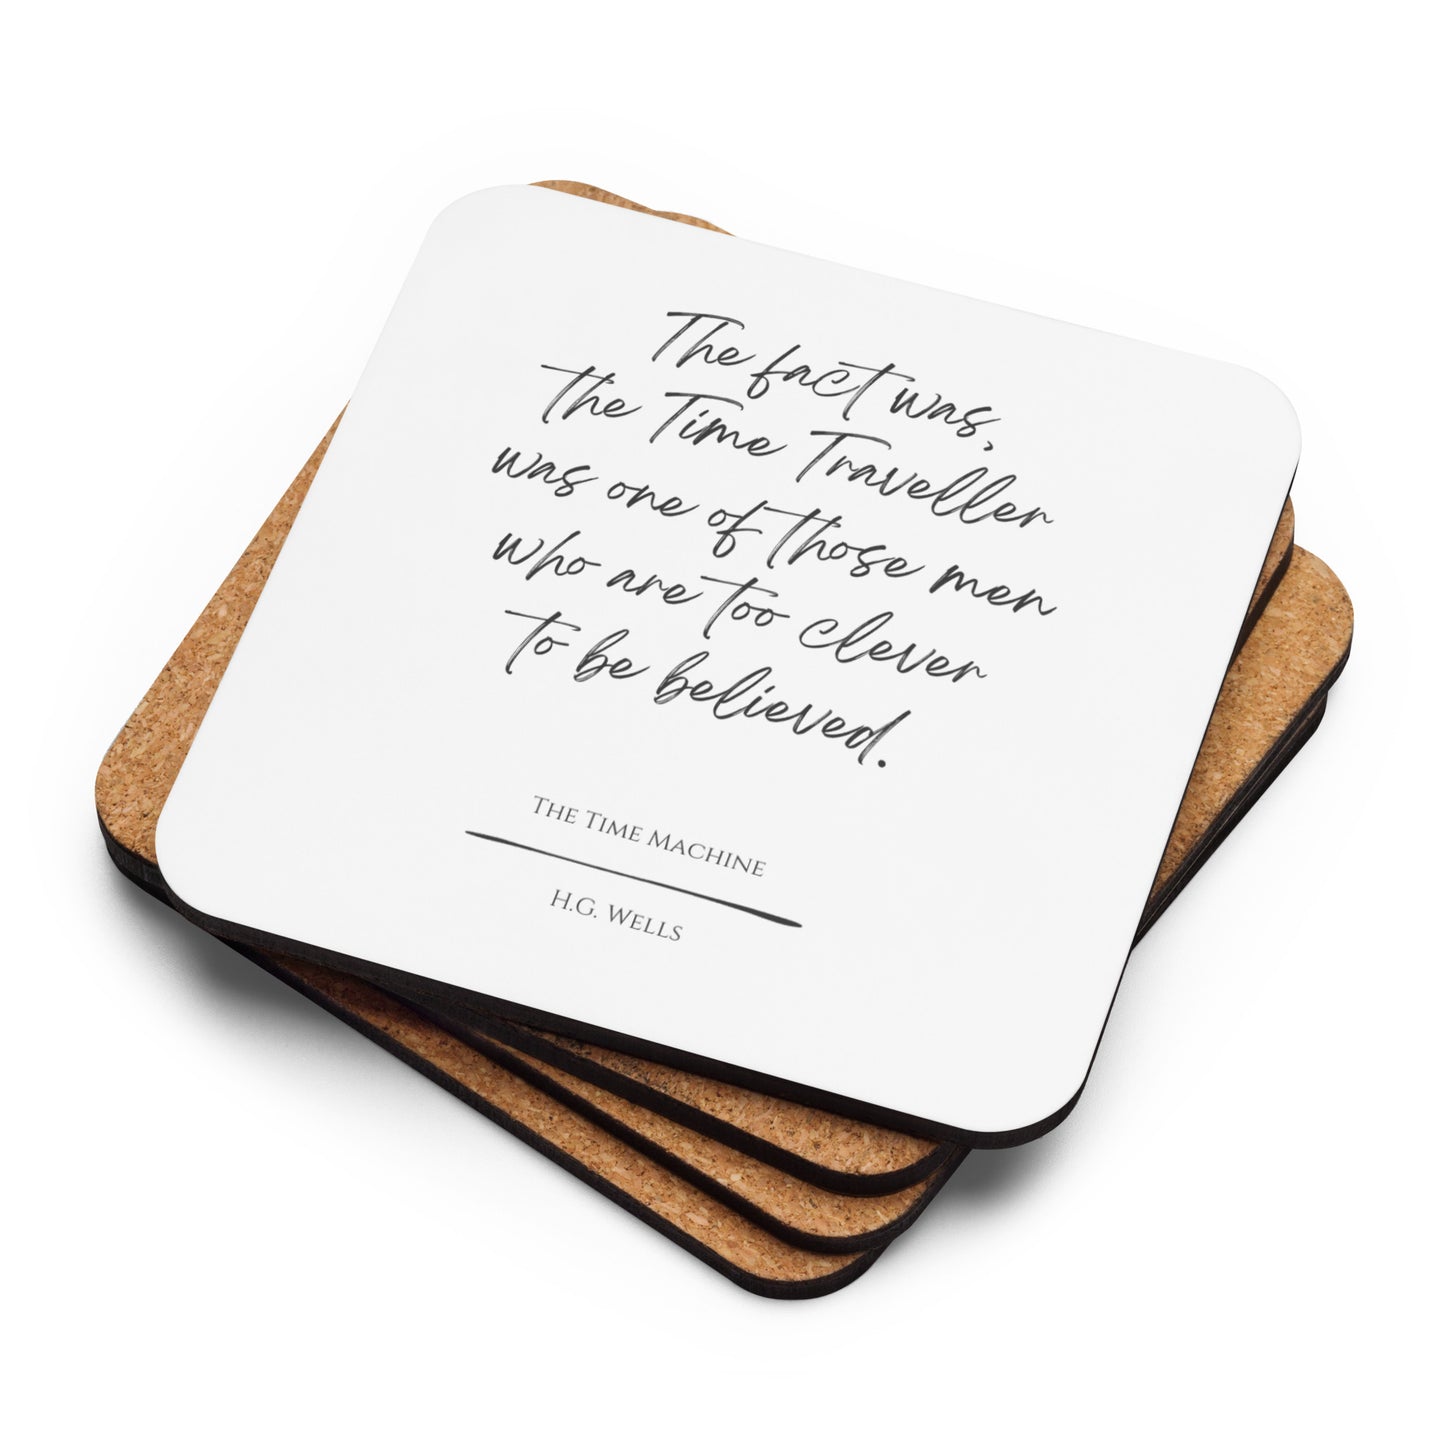 The fact was,
the Time Traveller
was one of those men
who are too clever
to be believed.
The Time Machine
H.G. Wells